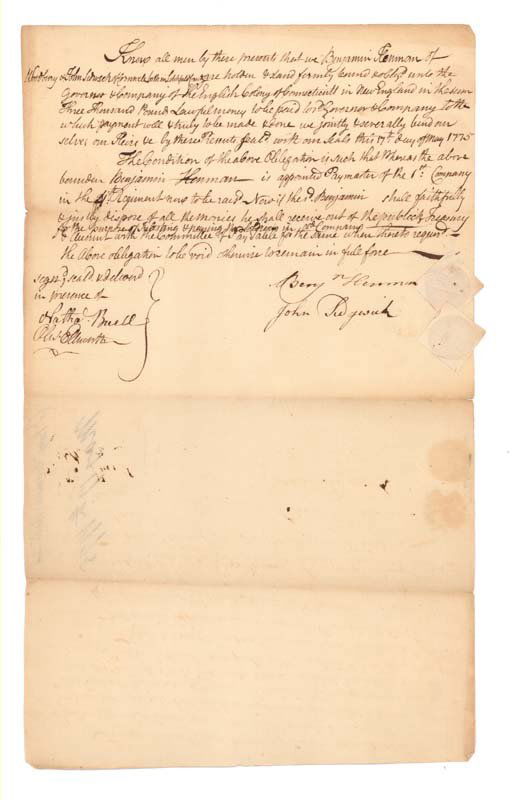 Know all men by these presents that we Benjamin Henman of
Woodbury & John Sedgwick of Cornwall both in are holden & stand firmly bound & oblig'd unto the
Governor & Company of the English Colony of Connecticutt in New England in the sum
Three thousand Pound Lawful money to be paid to sd Governor & Company to the
which payment well & truly to be made & done we jointly & severally bind our
selves our Heirs &c by these Presents Seal'd with our Seals this 17th day of May 1775
The Condition of the above Obligation is such that Whereas the above
bounden Benjamin Henman is appointed Paymaster of the 1st Company
in the 4th Regiment now to be raisd Now if the sd Benjamin shall faithfully
& justly dispose of all the monies he shall receive out of the publick Treasury
for the purpose of & paying in sd Company
& Account with the Committee of Pay Table for the same when thereto requird
the above obligation to be void otherwise to remain in full force
signd seald & deliverd
in presence of
Nathal Buell
Ellsworth
Benjn Henman
John Sedgwick